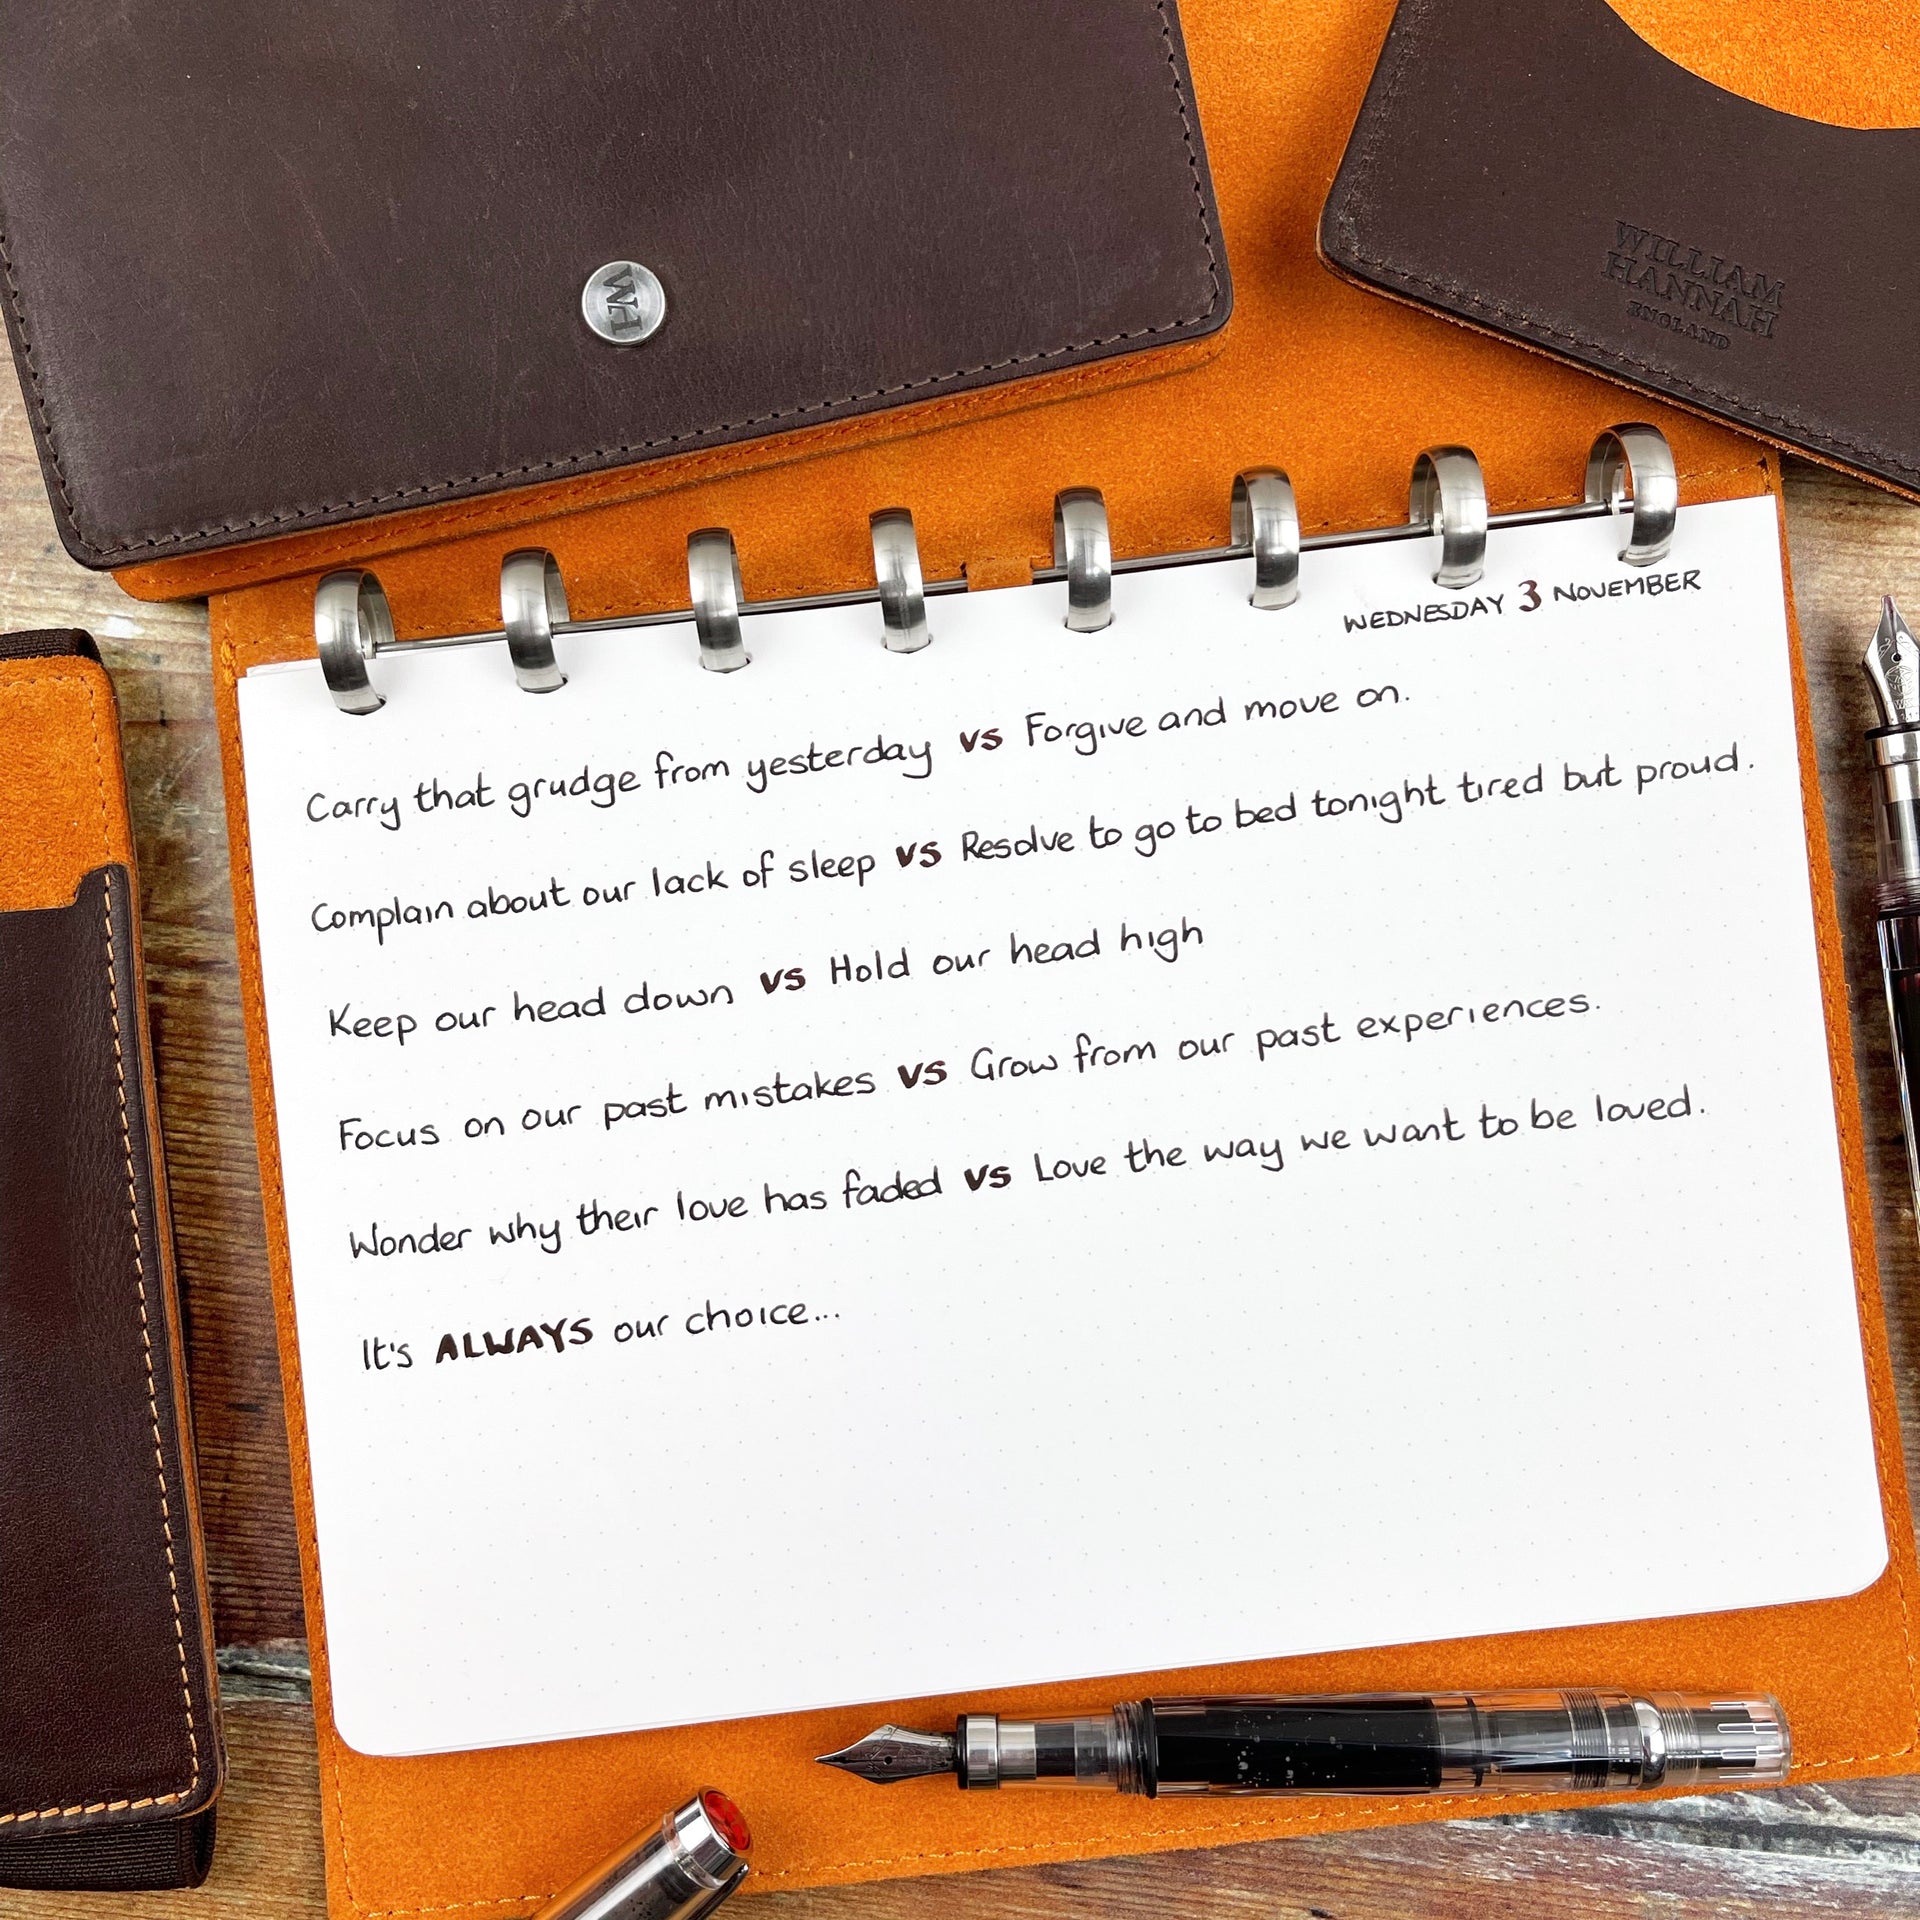 WH
WILLIAM
HANNAH
ENGLAND
WEDNESDAY 3 NOVEMBER
Carry that grudge from yesterday vs Forgive and move on.
Complain about our lack of sleep vs Resolve to go to bed tonight tired but proud.
Keep our head down vs Hold our head high
Focus on our past mistakes vs Grow from our past experiences.
Wonder why their love has faded vs Love the way we want to be loved.
It's ALWAYS our choice...